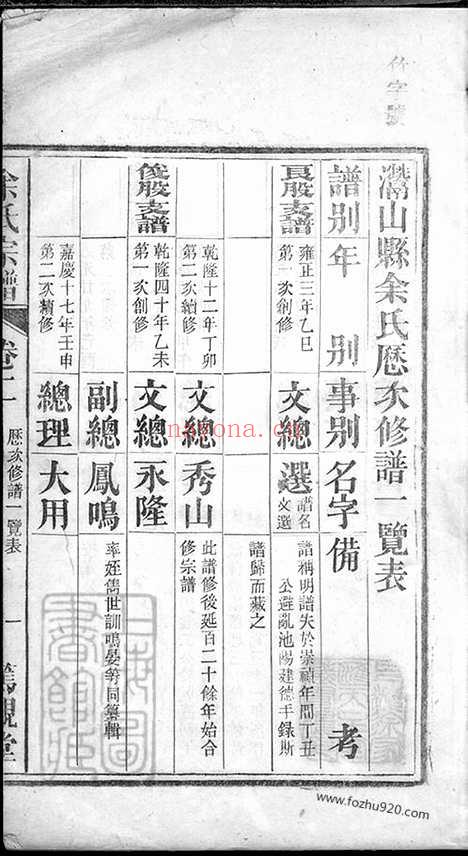 灊山縣余氏歷次修譜一覽表
譜別 年別 事別 名字 備考
良股支譜 雍正三年乙巳
第一次創修 文總 選 譜名
文選 譜稱明譜失於崇禎年間丁丑
公避亂池陽建德手錄斯
譜歸而藏之
乾隆十二年丁卯
第二次續修 文總 秀山 此譜修後延百二十餘年始合
修宗譜
俊股支譜 乾隆四十年乙未
第一次創修 文總 永隆
副總 鳳鳴 率姪儁世訓鳴晏等同纂輯
嘉慶十七年壬申
第二次續修 總理 大用
余氏宗譜 卷二 歷次修譜一覽表 一 篤親堂
nanona.cn
www.fozhu920.com